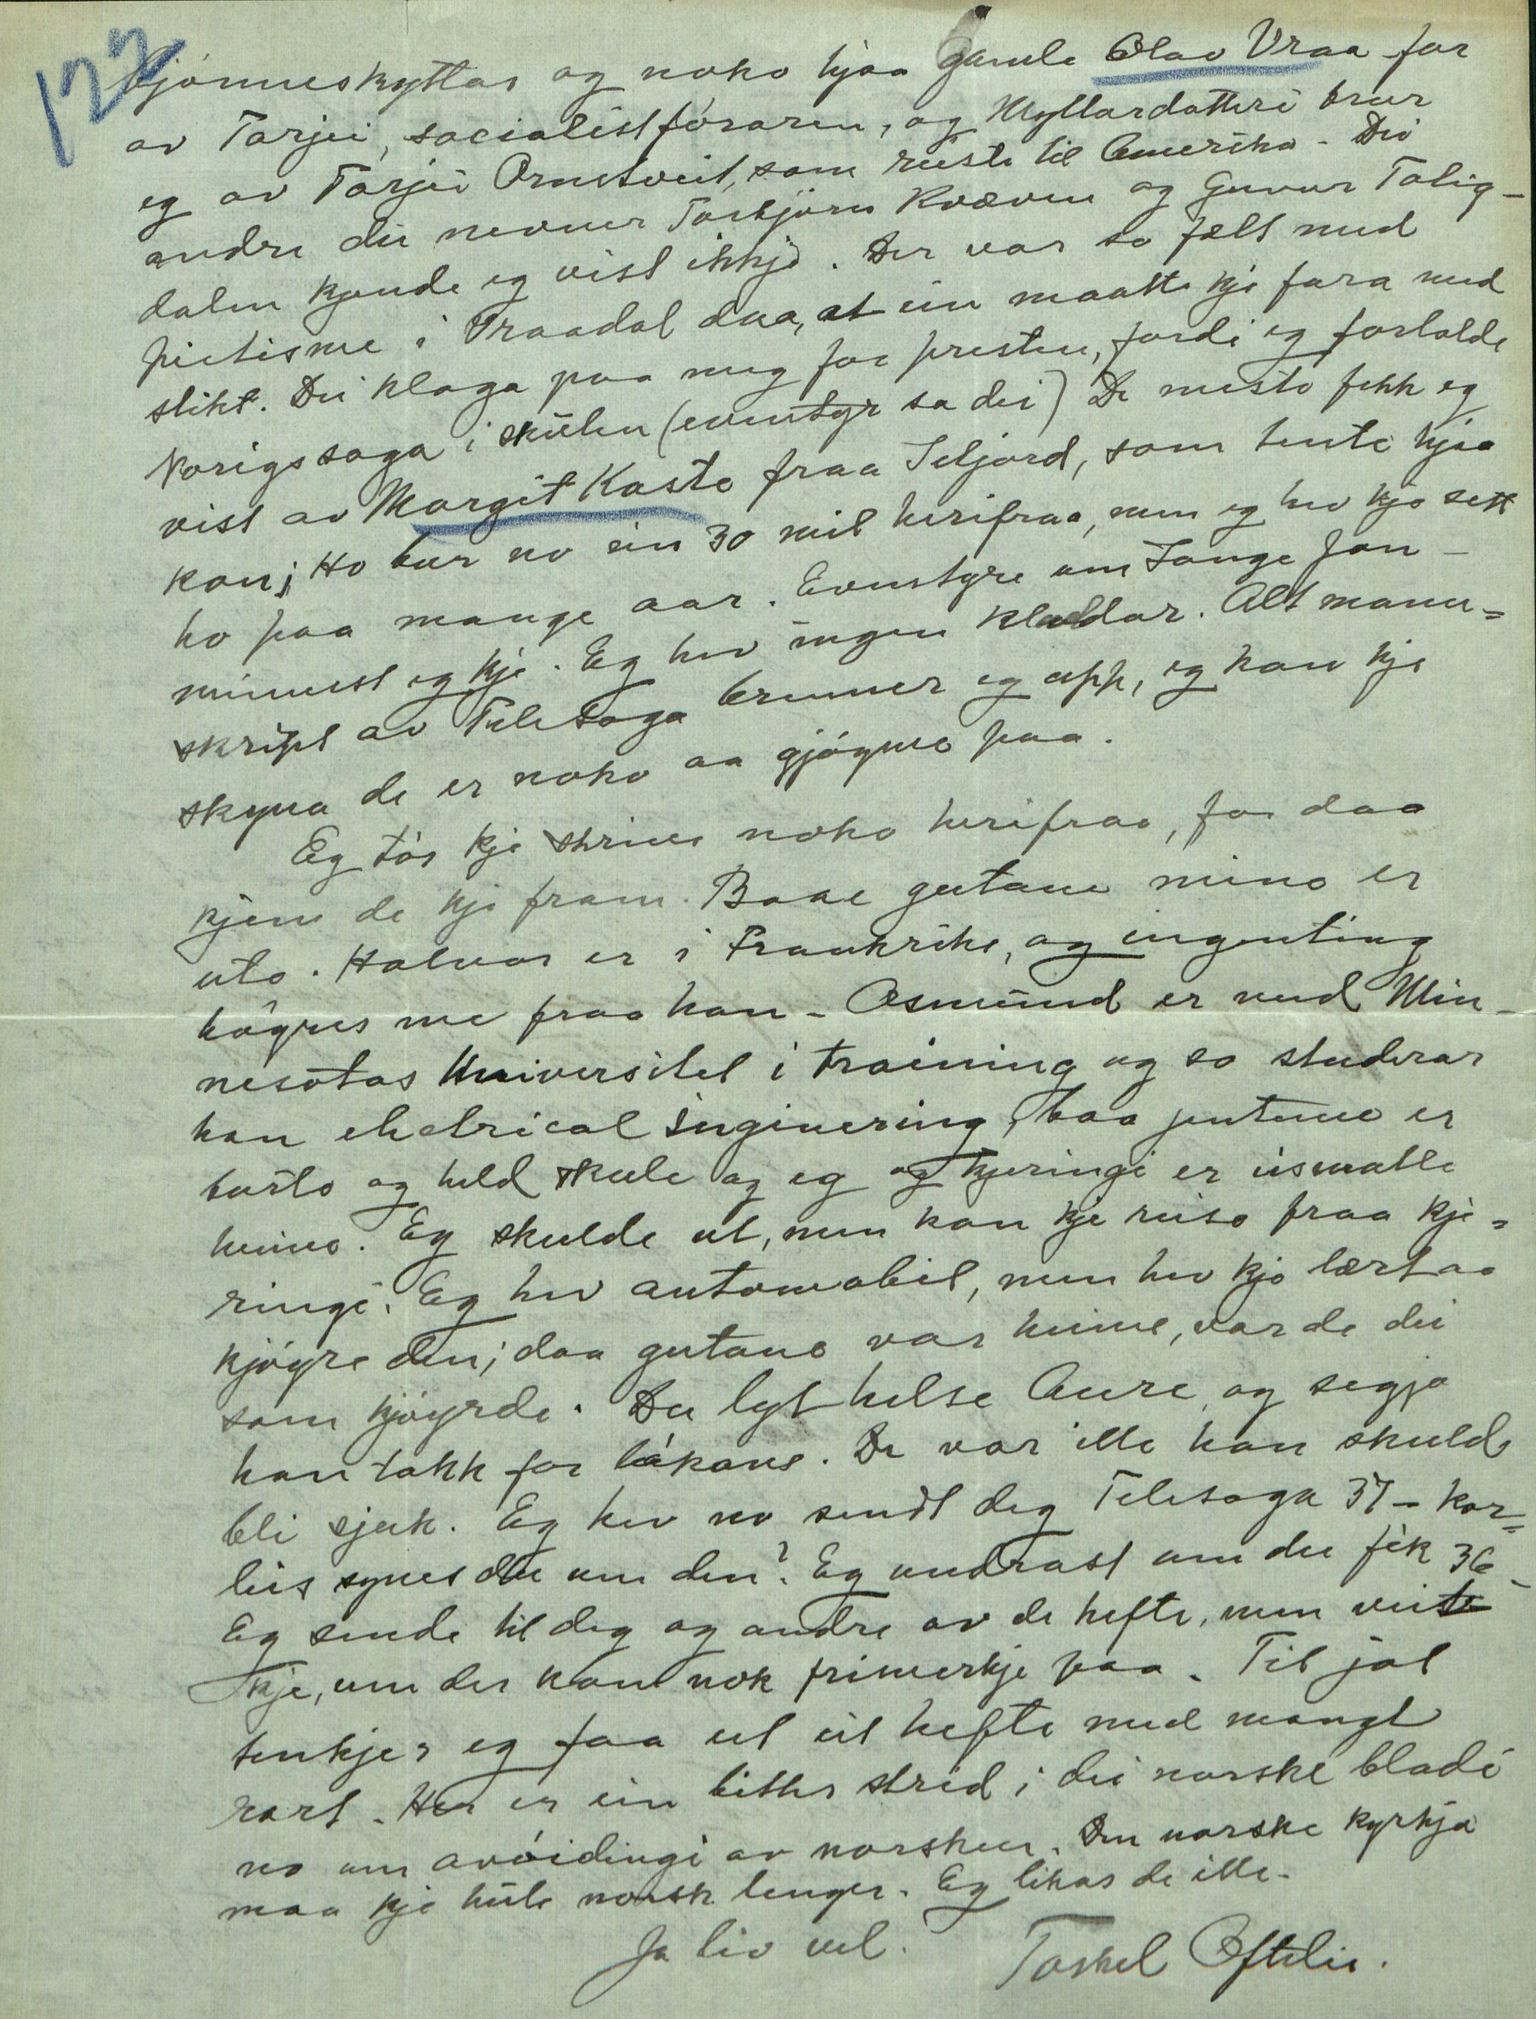 122
Bjönneskyttar og noko hjaa gamle Olav Vraa far
av Tarjei, socialistföraren, og Myllardotteri trur
eg av Tarjei Ornetveit, som reiste til Amerika - Dei
andre du nevner Torbjörn Kvæven og Gunvor Talig-
dalen kjende eg vist ikkje. Der var so fælt med
pietisme i Vraadal daa, at ein maatte kje fara med
slikt. Dei klaga paa meg for presten, fordi eg fortalde
Norigssoga i skulen (eventyr sa dei) De mesto fekk eg
vist av Margit Kasto fraa Seljord, som tente hjaa
kon; Ho bur no ein 30 mil herifraa, men eg hev kje sett
ho paa mange aar. Eventyre um Lange Jon -
minnest eg kje. Eg hev ingen kladdar. Alt manu-
skript av Telesoga brenner eg upp, eg kan kje
skyna de er noko aa gjöyme paa.
Eg tör kje skrive noko herifraa, for daa
kjem de kje fram. Baae gutane mino er
uto. Halvor er i Frankrike, og ingenting
höyres me fraa han - Osmund er ved Min-
nesotas Universitet i training og so studerar
han electrical inginering, baa jentune er
borto og held skule og eg og kjeringi er úsmatte
heimo. Eg skulde ut, men kan kje reiso fraa kje-
ringi. Eg hev automobil, men hev kje lært ao
kjöyre den; daa gutano var heime, var de dei
som kjöyrde. Du lyt helse Aure, og segja
han takk for bókane. De var ille han skulde
bli sjuk. Eg hev no sendt deg Telesoga 37 - kor-
leis synes du um den? Eg undrast um du fek 36 -
Eg sende til deg og andre av de hefte, men veit
kje, um der kom nok frimerkje paa. Til jol
tenkjer eg faa ut eit hefte med mangt
rart. Her er ein bitter strid i dei norske bladi
no um avöidingi av norsken. Den norske kyrkja
maa kje heite norsk lenger. Eg likas de ille.
Ja liv vel.
Torkel Oftelie.